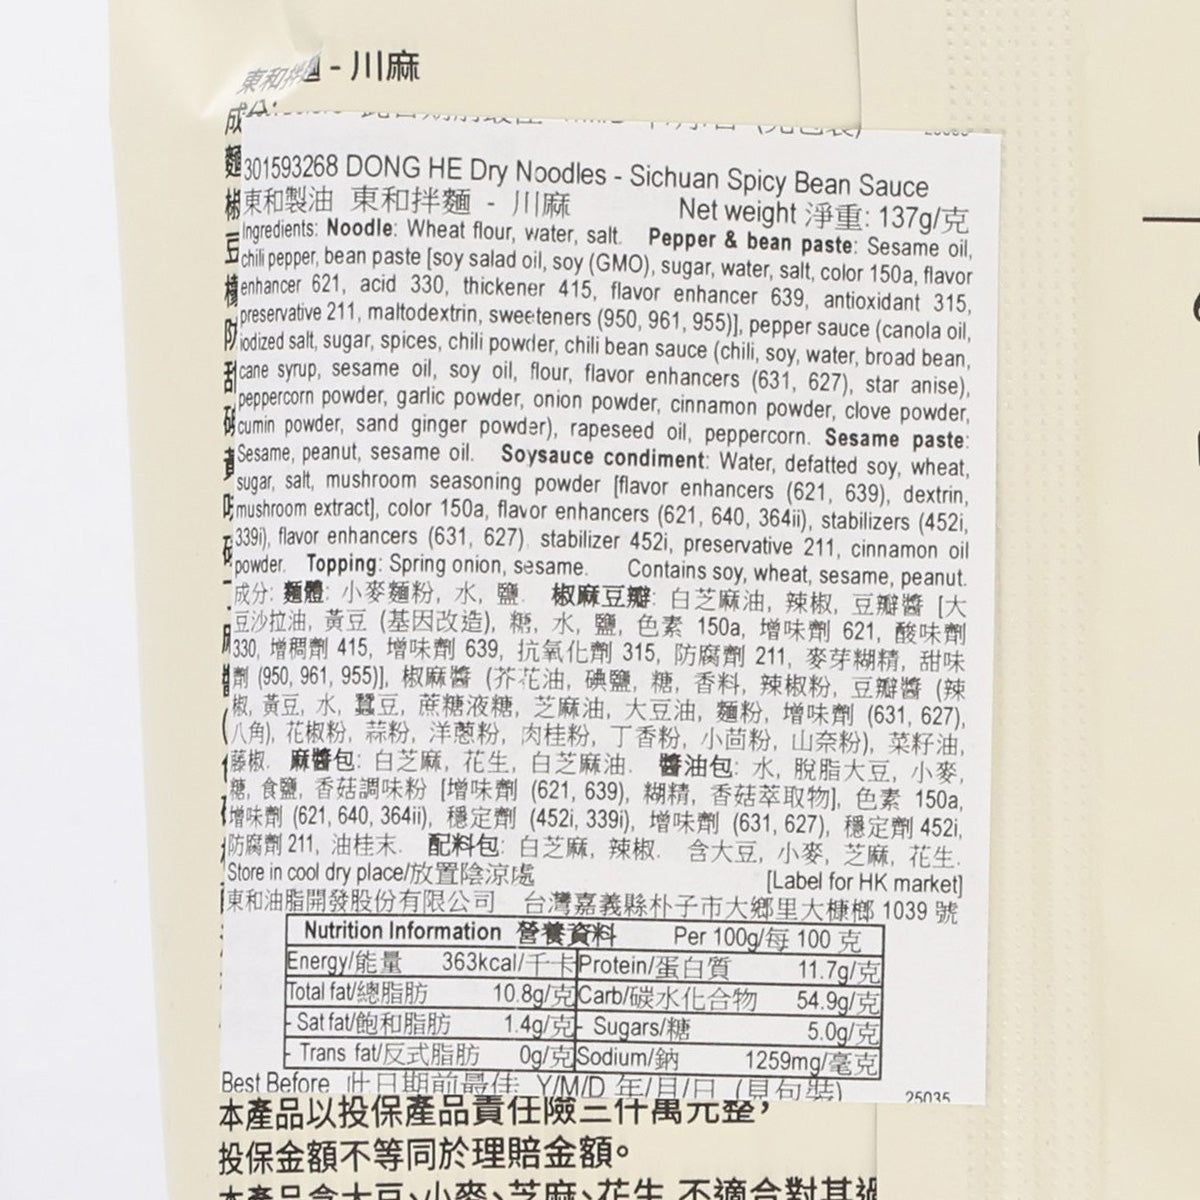 東和拌麵 - 川麻
成分:
301593268 DONG HE Dry Noodles - Sichuan Spicy Bean Sauce
東和製油 東和拌麵 - 川麻 Net weight 淨重: 137g/克
Ingredients: Noodle: Wheat flour, water, salt. Pepper & bean paste: Sesame oil,
chili pepper, bean paste [soy salad oil, soy (GMO), sugar, water, salt, color 150a, flavor
enhancer 621, acid 330, thickener 415, flavor enhancer 639, antioxidant 315,
preservative 211, maltodextrin, sweeteners (950, 961, 955)], pepper sauce (canola oil,
iodized salt, sugar, spices, chili powder, chili bean sauce (chili, soy, water, broad bean,
cane syrup, sesame oil, soy oil, flour, flavor enhancers (631, 627), star anise),
peppercorn powder, garlic powder, onion powder, cinnamon powder, clove powder,
cumin powder, sand ginger powder), rapeseed oil, peppercorn. Sesame paste:
Sesame, peanut, sesame oil. Soysauce condiment: Water, defatted soy, wheat,
sugar, salt, mushroom seasoning powder [flavor enhancers (621, 639), dextrin,
mushroom extract], color 150a, flavor enhancers (621, 640, 364ii), stabilizers (452i,
339i), flavor enhancers (631, 627), stabilizer 452i, preservative 211, cinnamon oil
powder. Topping: Spring onion, sesame. Contains soy, wheat, sesame, peanut.
成分: 麵體: 小麥麵粉, 水, 鹽. 椒麻豆瓣: 白芝麻油, 辣椒, 豆瓣醬 [大
豆沙拉油, 黃豆 (基因改造), 糖, 水, 鹽, 色素 150a, 增味劑 621, 酸味劑
330, 增稠劑 415, 增味劑 639, 抗氧化劑 315, 防腐劑 211, 麥芽糊精, 甜味
劑 (950, 961, 955)], 椒麻醬 (芥花油, 碘鹽, 糖, 香料, 辣椒粉, 豆瓣醬 (辣
椒, 黃豆, 水, 蠶豆, 蔗糖液糖, 芝麻油, 大豆油, 麵粉, 增味劑 (631, 627),
八角), 花椒粉, 蒜粉, 洋蔥粉, 肉桂粉, 丁香粉, 小茴粉, 山奈粉), 菜籽油,
藤椒. 麻醬包: 白芝麻, 花生, 白芝麻油. 醬油包: 水, 脫脂大豆, 小麥,
糖, 食鹽, 香菇調味粉 [增味劑 (621, 639), 糊精, 香菇萃取物], 色素 150a,
增味劑 (621, 640, 364ii), 穩定劑 (452i, 339i), 增味劑 (631, 627), 穩定劑 452i,
防腐劑 211, 油桂末. 配料包: 白芝麻, 辣椒. 含大豆, 小麥, 芝麻, 花生.
Store in cool dry place/放置陰涼處 [Label for HK market]
東和油脂開發股份有限公司 台灣嘉義縣朴子市大鄉里大槺榔 1039 號
Nutrition Information 營養資料 Per 100g/每 100 克
Energy/能量 363kcal/千卡 Protein/蛋白質 11.7g/克
Total fat/總脂肪 10.8g/克 Carb/碳水化合物 54.9g/克
- Sat fat/飽和脂肪 1.4g/克 - Sugars/糖 5.0g/克
- Trans fat/反式脂肪 0g/克 Sodium/鈉 1259mg/毫克
Best Before 此日期前最佳 Y/M/D 年/月/日 (見包裝) 25035
本產品以投保產品責任險三仟萬元整，
投保金額不等同於理賠金額。
本產品含大豆、小麥、芝麻、花生，不適合對其過